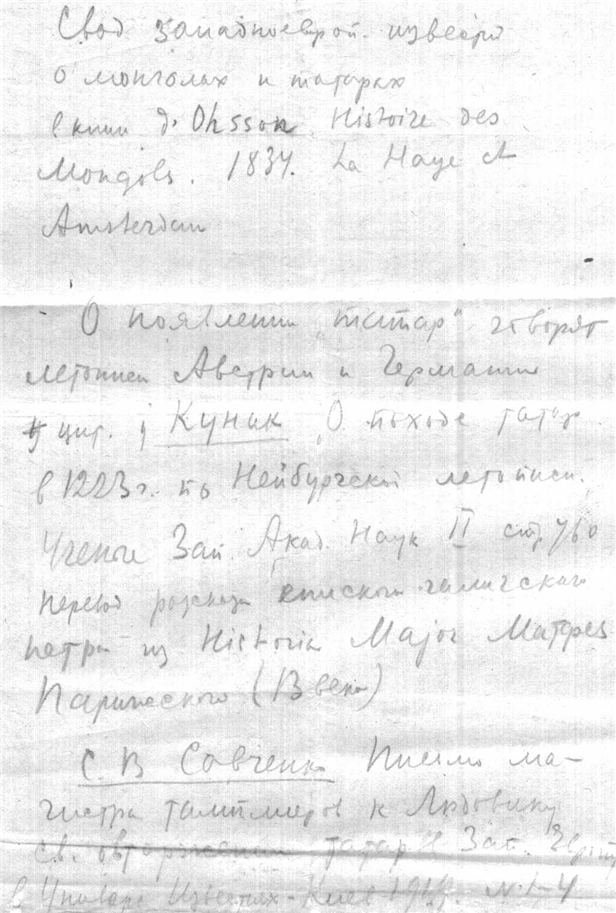 Свод западноевроп. известий
о монголах и татарах
в книге d'Ohsson Histoire des
Mongols. 1834. La Haye et
Amsterdam
О появлении "татар" говорят
летописи Австрии и Германии
цит. у Куник "О походе татар
в 1223 г. по Нейбургской летописи.
Ученые Зап. Акад. Наук II стр. 760
перевод рассказа епископа галичского
петра из Historia Major Матфея
Парижского (13 века)
С. В Савченко Письмо ма-
гистра тамплиеров к Людовику
св. о вторжении татар в Зап. Европу
в Универс Известиях - Киев 1919. № 1-4